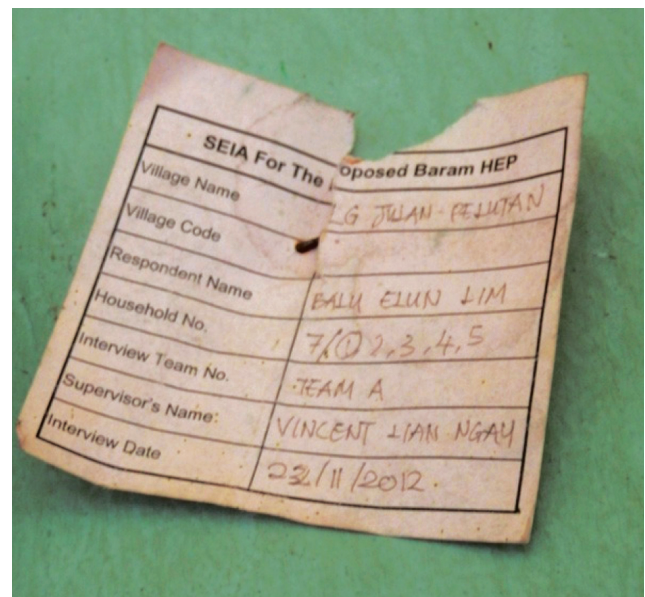 SEIA For The oposed Baram HEP
Village Name G JUAN-PELUTAN
Village Code
Respondent Name BALU ELUN LIM
Household No. 7/① 2,3,4,5
Interview Team No. TEAM A
Supervisor's Name: VINCENT LIAN NGAU
Interview Date 22/11/2012